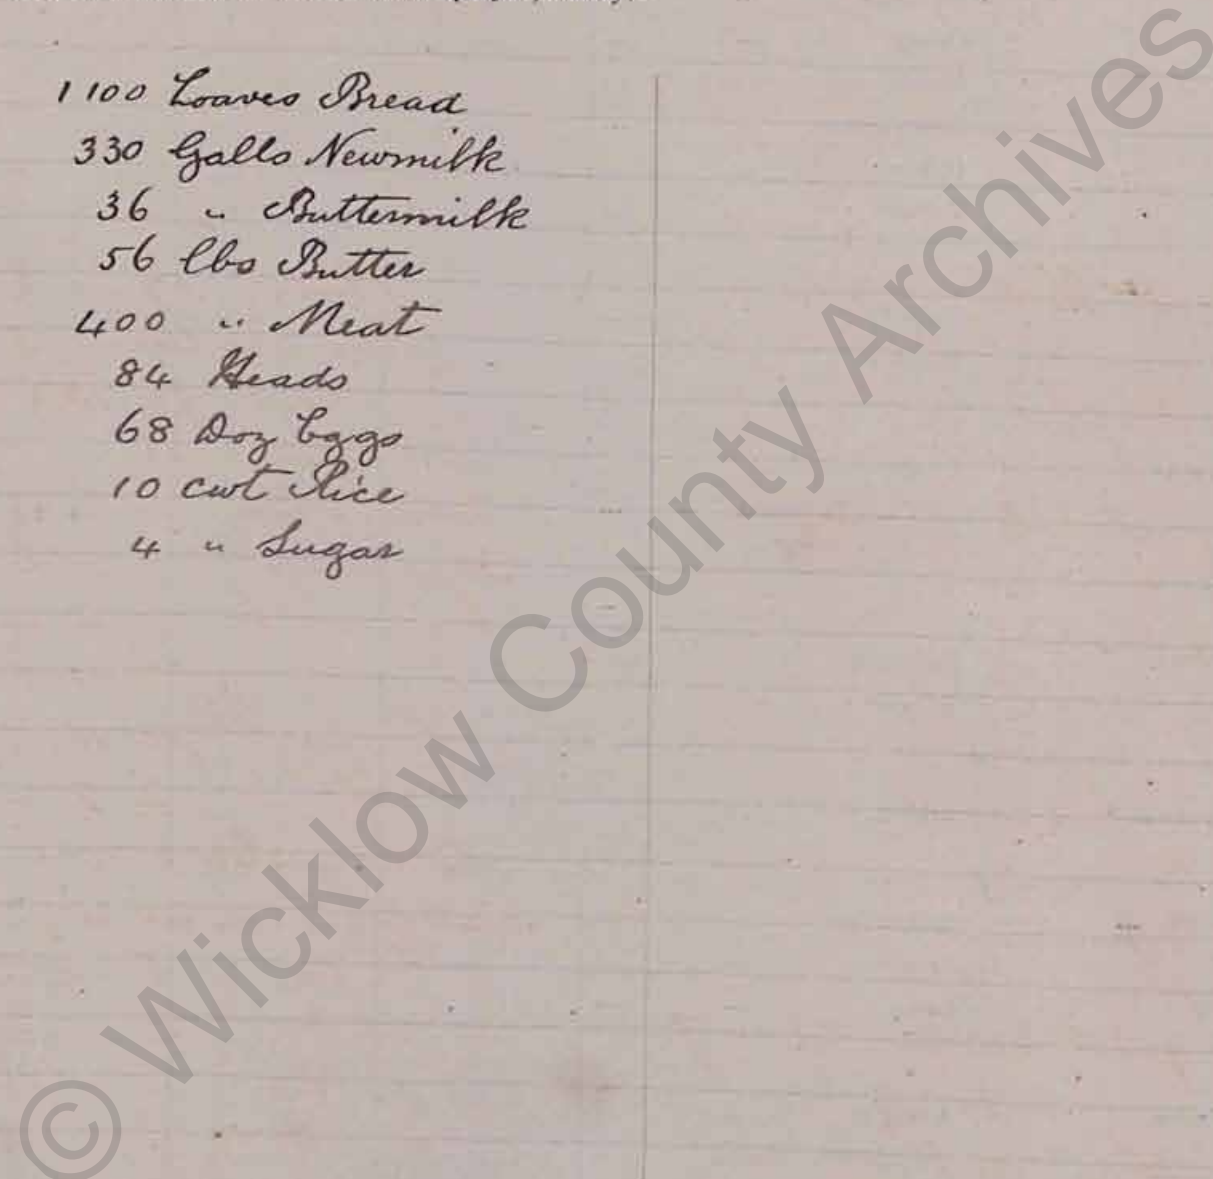 1100 Loaves Bread
330 Galls Newmilk
36 " Buttermilk
56 lbs Butter
400 " Meat
84 Heads
68 Doz Eggs
10 cwt Rice
4 " Sugar
© Wicklow County Archives